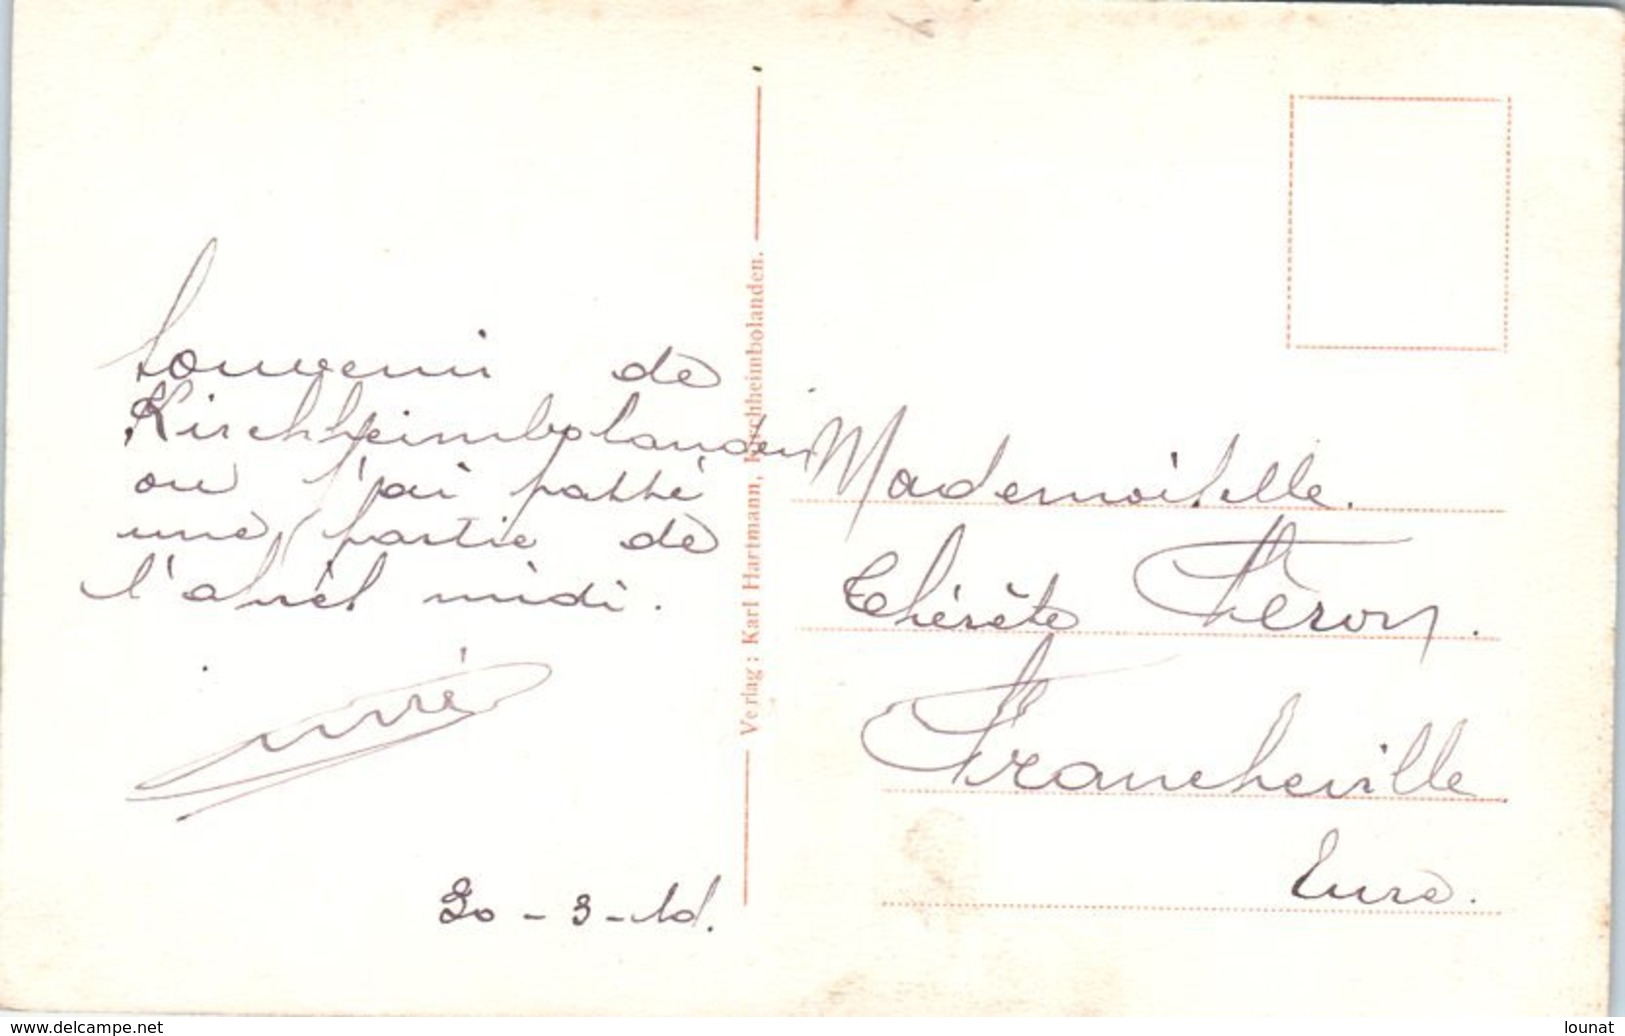 Souvenir de
Kirchheimbolanden
ou j'ai passé
une partie de
l'après midi.
Verlag: Karl Hartmann, Kirchheimbolanden.
Mademoiselle.
Thérèse Féron.
Francheville
Eure.
www.delcampe.net
lounat